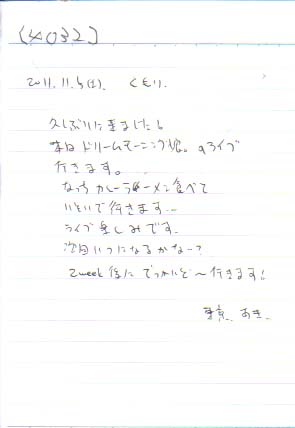 [4032]
2011.11.5(土). くもり.
久しぶりに来ました!
本日ドリームモーニング娘。のライブ
行きます。
なっちカレーラーメン食べて
いそいで行きます…
ライブ楽しみです.
次回いつになるかなー?
2week後に でっかいどー行きます!
東京 あき